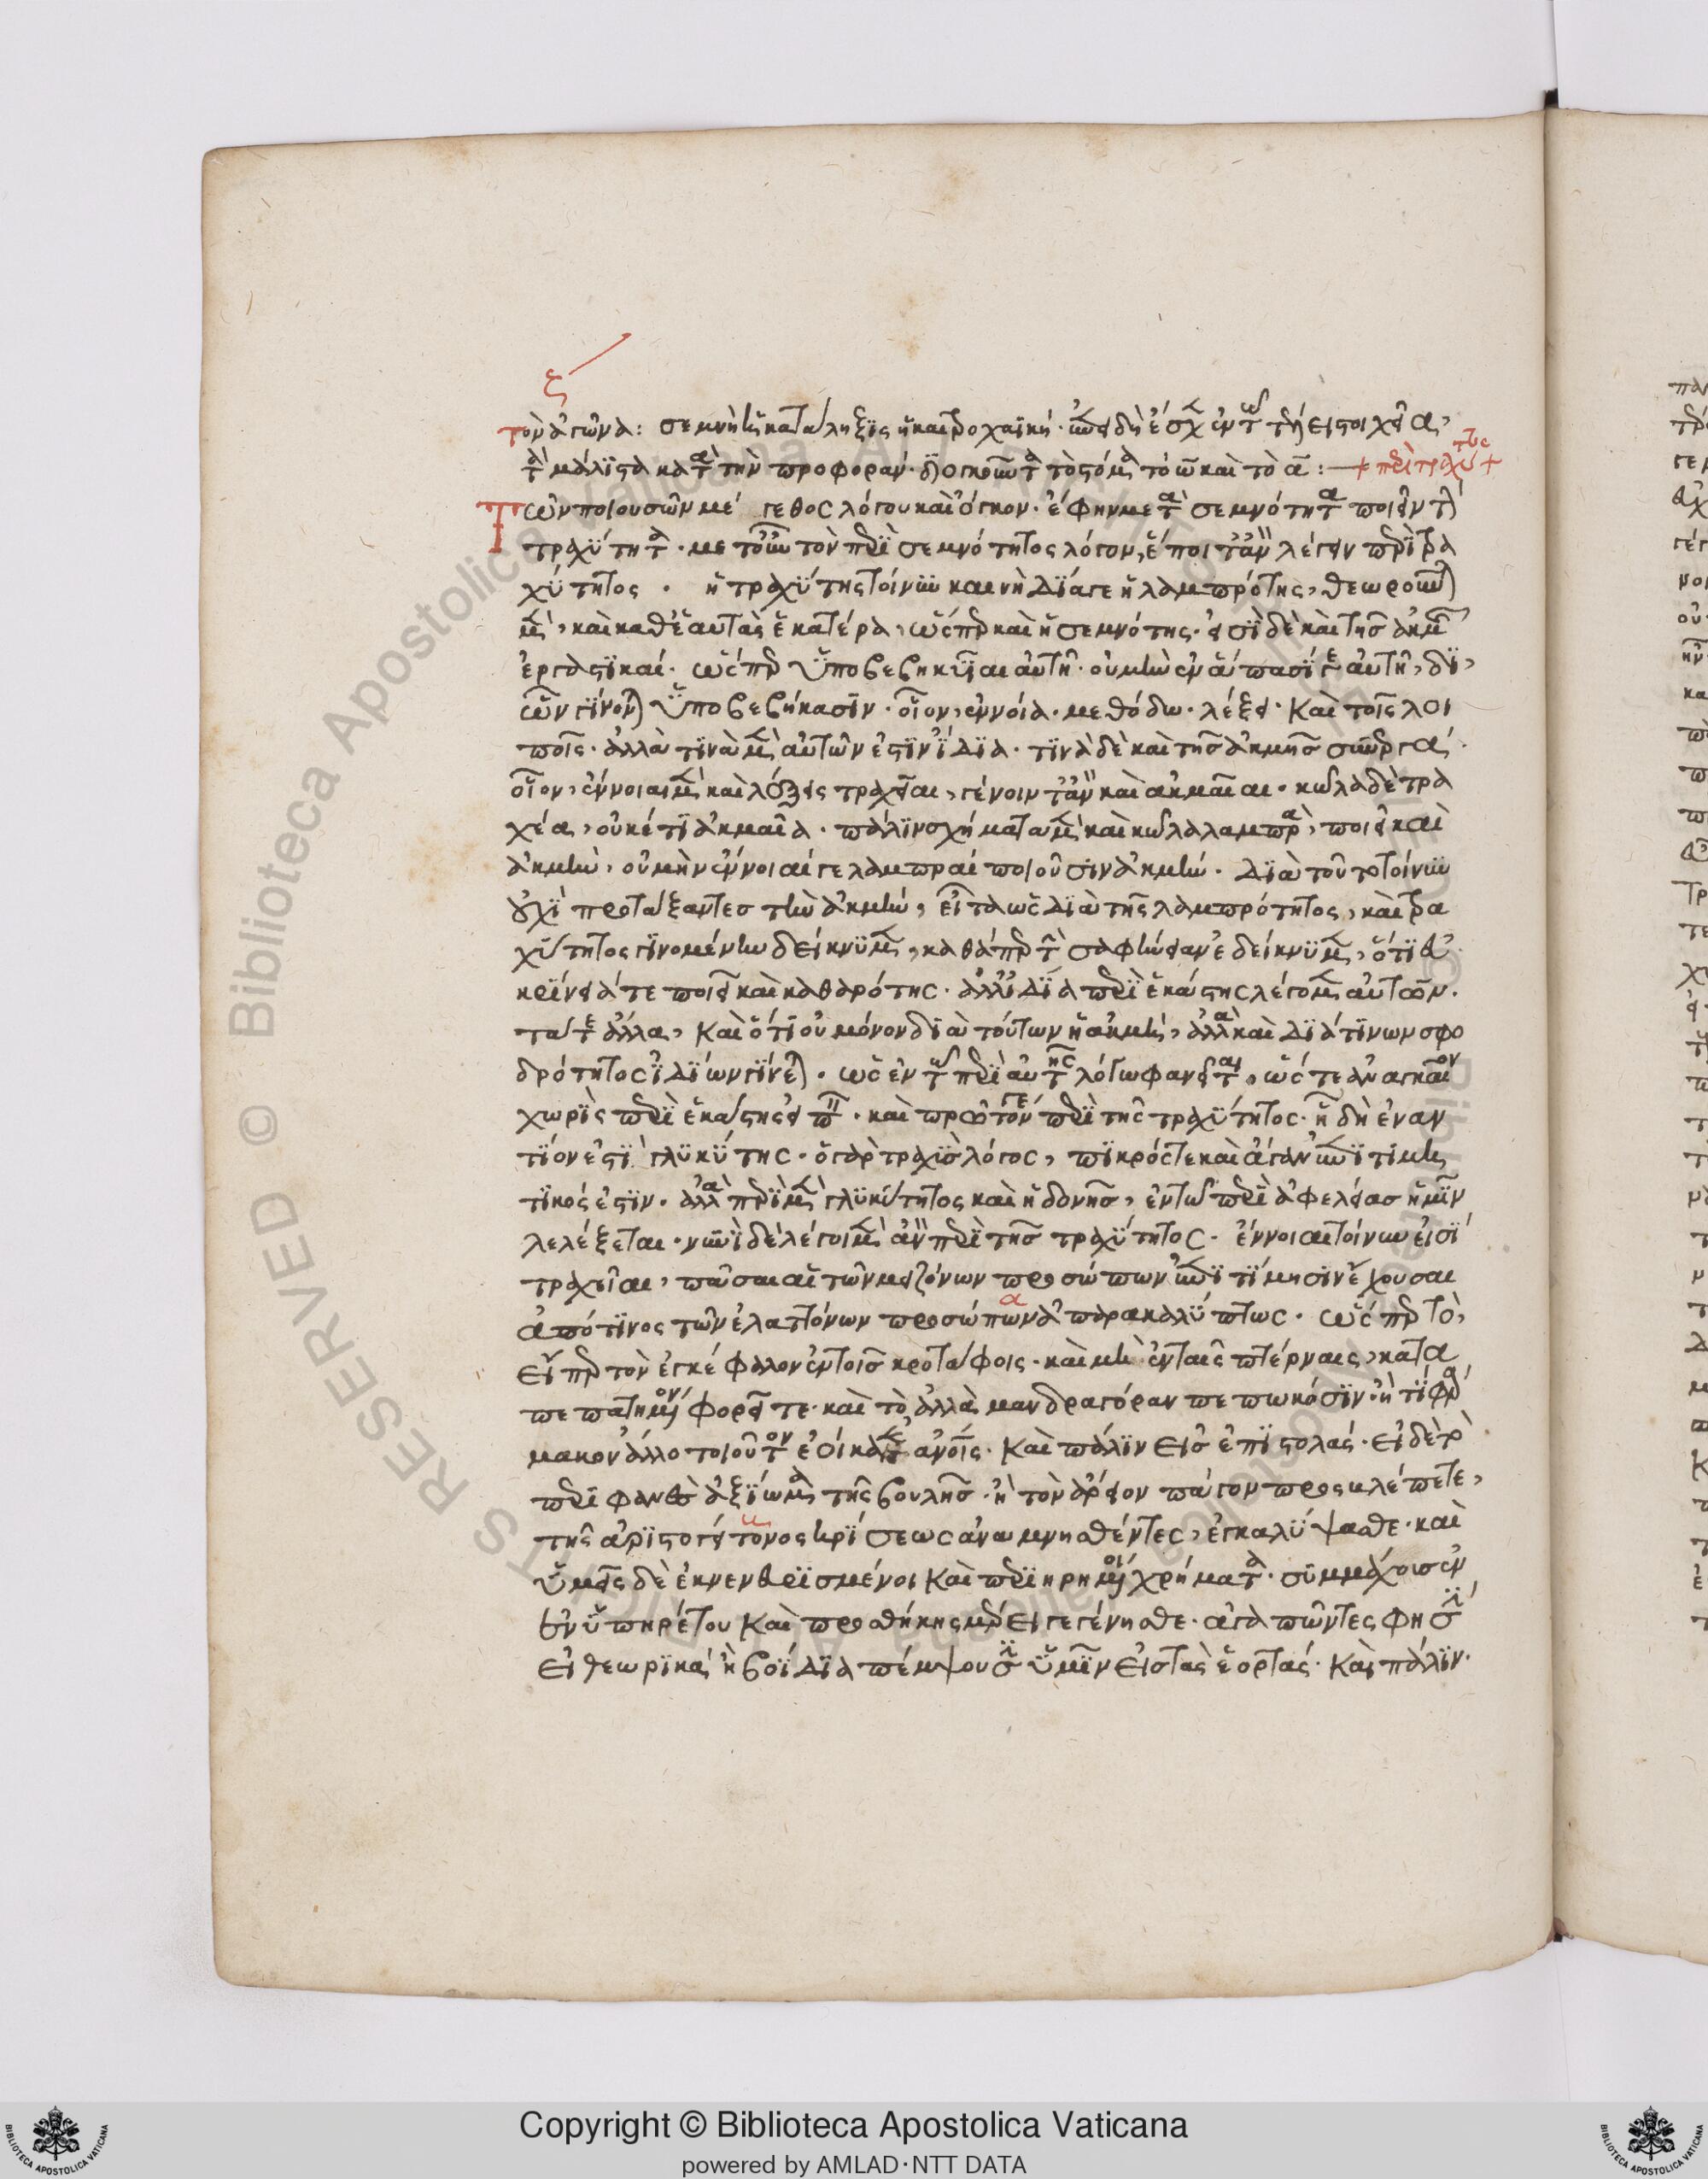 ζ
τὸν ἀγῶνα: σεμνὴ ἡ κατάληξις ἡ καὶ τροχαϊκή· ὡς δὴ ἔσχ ἐν τ τῇ εἰ στοιχεῖα,
τ μάλιστα κατ τὴν προφοράν· διογκοῦντ τὸ στόμ τὸ ω καὶ τὸ α: + περὶ τραχύτητος +
Τῶν ποιουσῶν μέγεθος λόγου καὶ ὄγκον· ἔφην μετ σεμνότητ ποιεῖν τ
τραχύτητ· μετ οὖν τὸν περὶ σεμνότητος λόγον, ἕποιτ ἂν λέγειν περὶ τρα
χύτητος· ἡ τραχύτης τοίνυν καὶ νὴ Δία γε ἡ λαμπρότης, θεωροῦντ
μ, καὶ καθ' ἑαυτὰς ἑκατέρα, ὥσπερ καὶ ἡ σεμνότης· εἰσὶ δὲ καὶ τῆς ἀκμῆς
ἐργαστικαί· ὥσπερ ὑποβεβηκυῖαι αὐτῇ· οὐ μὴν ἐν ἅπασί γε αὐτῇ, δι'
ὧν γίνονται ὑποβεβήκασιν· οἷον, ἐννοίᾳ· μεθόδω· λέξει· καὶ τοῖς λοι
ποῖς· ἀλλὰ τινὰ μ αὐτῶν ἐστὶν ἴδια· τινὰ δὲ καὶ τῆς ἀκμῆς συνεργά·
οἷον, ἔννοιαι μ καὶ λέξεις τραχεῖαι, γένοιντ ἂν καὶ ἀκμαῖαι· κῶλα δὲ τρα
χέα, οὐκέτι ἀκμαῖα· πάλιν σχήματα μ καὶ κῶλα λαμπρ, ποιεῖ καὶ
ἀκμὴν, οὐ μὴν ἔννοιαί γε λαμπραὶ ποιοῦσιν ἀκμήν· Διὰ τοῦτο τοίνυν
οὐχὶ προτάξαντες τὴν ἀκμὴν, εἶτα ὡς διὰ τῆς λαμπρότητος, καὶ τρα
χύτητος γινομένην δείκνυμ, καθάπερ τ σαφήνειαν ἐδείκνυμ, ὅτι εὐ
κρίνειά τε ποιεῖ καὶ καθαρότης· ἀλλ' ἰδίᾳ περὶ ἑκάστης λέγομ αὐτῶν·
τά τε ἄλλα, καὶ ὅτι οὐ μόνον διὰ τούτων ἡ ἀκμὴ, ἀλλὰ καὶ διά τινων σφο
δρότητος ἰδίων γίνεται· ὡς ἐν τ περὶ αὐτῆς λόγω φανεῖται, ὥστε ἀναγκαῖον
χωρὶς περὶ ἑκάστης εἰπ· καὶ πρῶτόν γε περὶ τῆς τραχύτητος· ᾗ δὴ ἐναν
τίον ἐστὶ γλυκύτης· ὁ γὰρ τραχὺς λόγος, πικρός τε καὶ ἄγαν ἐπιτιμη
τικός ἐστιν· ἀλλὰ περὶ μ γλυκύτητος καὶ ἡδονῆς, ἐν τῶ περὶ ἀφελείας ἡμῖν
λελέξεται· νυνὶ δὲ λέγοιμ ἂν περὶ τῆς τραχύτητος· ἔννοιαι τοίνυν εἰσὶ
τραχεῖαι, πᾶσαι αἱ τῶν μειζόνων προσώπων ἐπιτίμησιν ἔχουσαι
ἀπό τινος τῶν ἐλαττόνων προσώπων ἀπαρακαλύπτως· ὥσπερ τὸ,
εἴπερ τὸν ἐγκέφαλον ἐν τοῖς κροτάφοις· καὶ μὴ ἐν ταῖς πτέρναις, κατα
πεπατημένον φορεῖτε· καὶ τὸ ἀλλὰ μανδραγόραν πεπωκόσιν· ἢ τι φάρ
μακον ἄλλο τοιοῦτον ἐοίκα ἀνοις· καὶ πάλιν εἰς ἐπιστολάς· εἰ δὲ
περι ἀξίωμ τῆς βουλῆς· ἢ τὸν ἄρειον πάγον προσβλέπετε,
τῆς ἀριστογείτονος κρίσεως ἀναμνησθέντες, ἐγκαλύψασθε· καὶ
ὑμεῖς δὲ ἐκνενευρισμένοι καὶ περιῃρημένοι χρήματ· συμμάχους ἐν
ἐν ὑπηρέτου καὶ προσθήκης μέρει γεγένησθε· ἀγαπῶντες φησ
εἰ θεωρικά· ἢ βοίδια πέμψουσ ὑμῖν εἰς τὰς ἑορτάς· καὶ πάλιν·
Copyright © Biblioteca Apostolica Vaticana
powered by AMLAD·NTT DATA